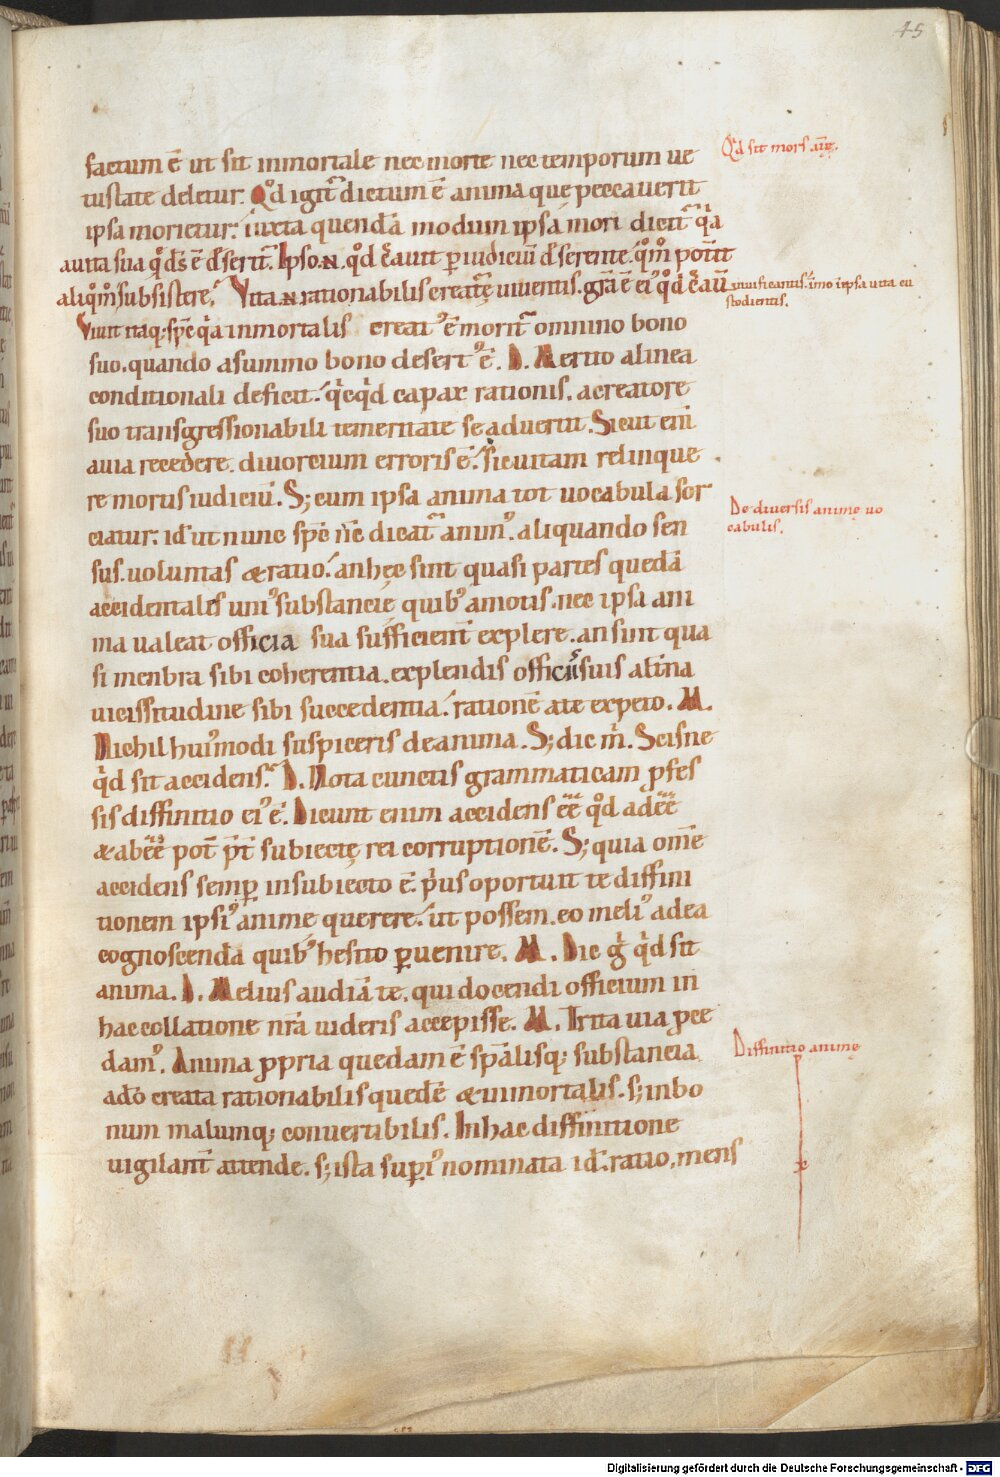 45
factum ē ut sit inmortale nec morte nec temporum ue
Qͥd sit mors aīę.
tustate deletur. Qͦd igit᷑ dictum ē anima que peccauerit
ipsa morietur. iuxta quendā modum ipsā mori dicit᷑ q̄a
a uita sua q̄ d̄s ē d̄serit᷑. Ipso .N. qͦd c̄auit p̱ iudiciū d̄serente. qͦm̄ potit
aliqͦm̄ subsistere. Vita .N. rationabilis creat᷑ę uiuentis. gr̄a ē ei᾿ qͥ d̄ c̄aū
uiuificantis. īmo ipsa uita cu
stodientis.
Viuit itaq; sp̄c q̄a inmortalis creat᾿ ē morit᷑ omnino bono
suo. quando a summo bono desert᾿ ē. D. Merito a linea
conditionali deficit. qͥcqͥd capax rationis. a creatore
suo transgressionabili temeritate se aduertit. Sicut eni
a uia recedere. diuorcium erroris ē. sic uitam relinque
re mortis iudiciū. S; cum ipsa anima tot uocabula sor
De diuersis animę uo
cabulis.
ciatur. id ut nunc sp̄c n̄c dicat᷑ anim᾿. aliquando sen
sus. uoluntas & ratio. an hec sint quasi partes quedā
accidentales uni᾿ substancię quib᾿ amotis. nec ipsa ani
ma ualeat officia sua sufficient̄ explere. an sunt qua
si menbra sibi coherentia. explendis officiis suis alt̄na
uicissitudine sibi succedentia. rationē a te expeto. M.
Nichil hui᾿modi suspiceris de anima. S; dic m̄. Scisne
qͥd sit accidens. D. Nota cunctis grammaticam p̱fes
sis diffinitio ei᾿ ē. Dicunt enim accidens ēē qͦd adēē
& abēē pot̄ p̄t subiectę rei corruptionē. S; quia om̄e
accidens semp̱ in subiecto ē. p̄us oportuit te diffini
tionem ipsi᾿ anime querere. ut possem. eo meli᾿ ad ea
cognoscenda quib᾿ hesito p̱uenire. M. Dic g̊ qͥd sit
anima. D. Melius audiā te. qui docendi officium in
hac collatione nr̄a uideris accepisse. M. Trita uia p̱ce
dam᾿. Anima p̱pria quedam ē sp̄alisq; substancia
Diffinitio animę
adō creata rationabilis quedē & inmortalis. s; in bo
num malumq; conuertibilis. In hac diffinitione
uigilant̄ attende. s; ista sup̱i᾿ nominata id. ratio, mens
Digitalisierung gefördert durch die Deutsche Forschungsgemeinschaft - DFG